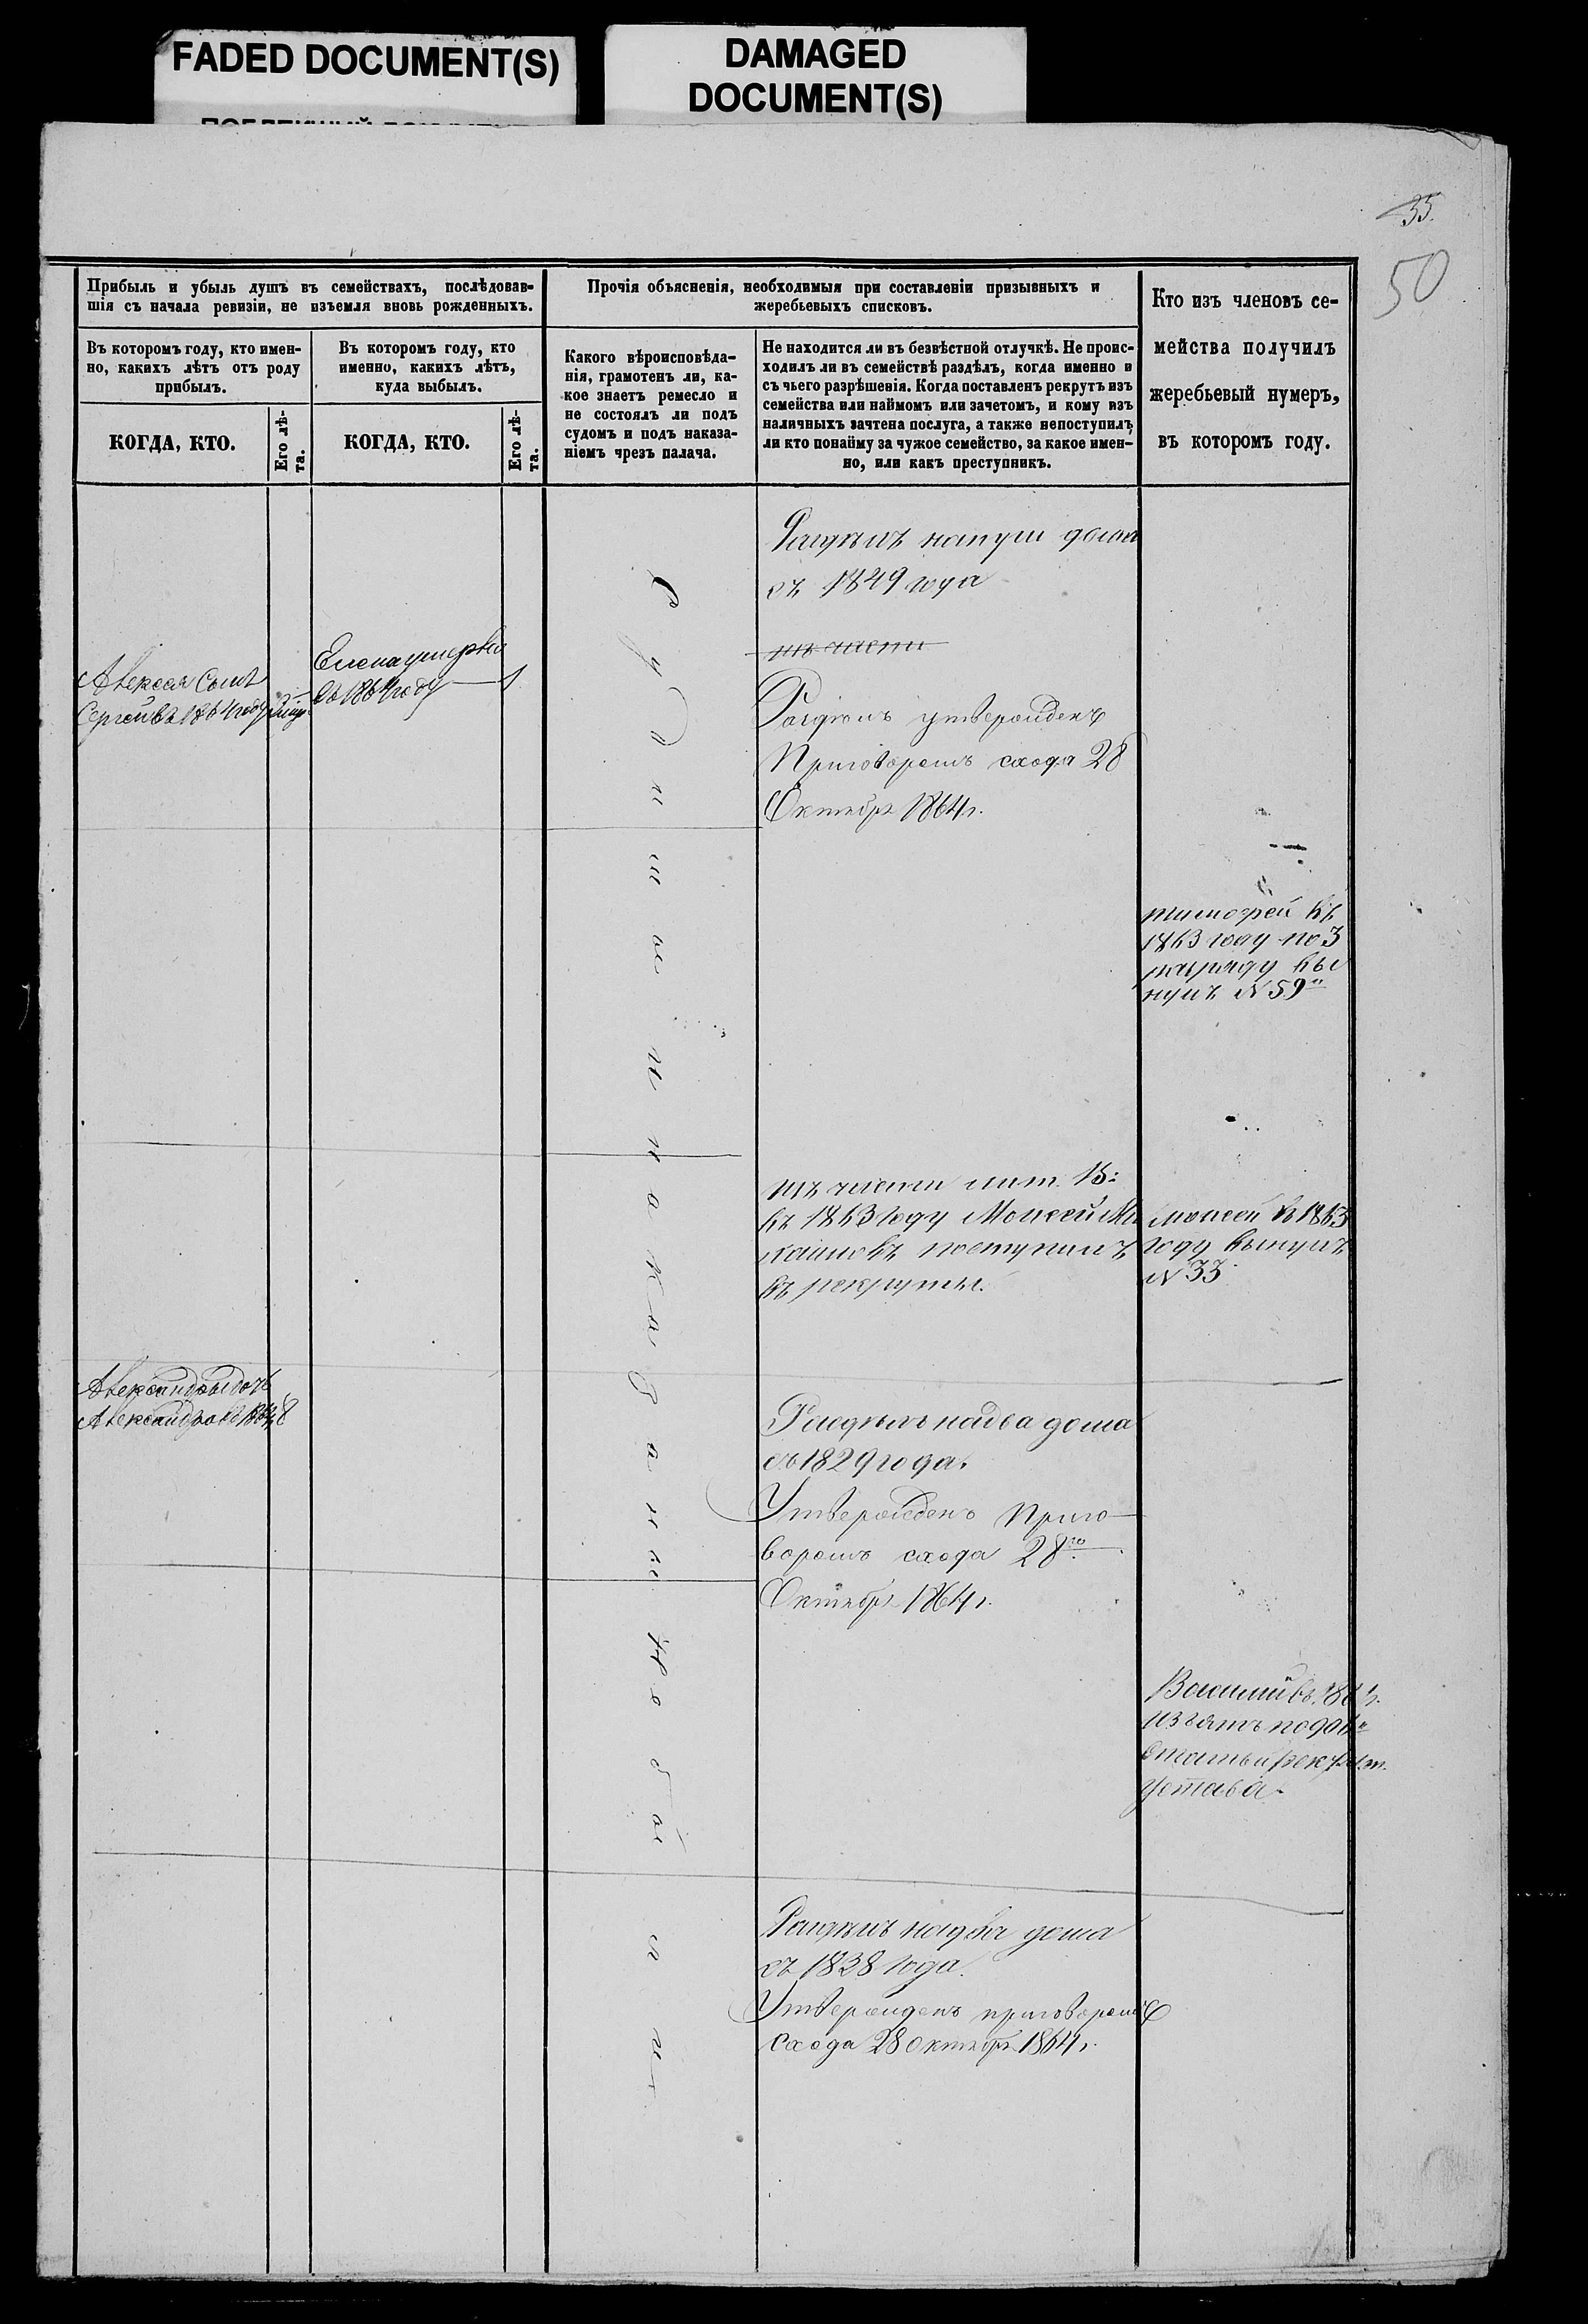 FADED DOCUMENT(S)
DAMAGED
DOCUMENT(S)
35.
50
Прибыль и убыль душъ въ семействахъ, послѣдовав-
шія съ начала ревизіи, не изъемля вновь рожденныхъ.
Въ которомъ году, кто имен-
но, какихъ лѣтъ отъ роду
прибылъ.
КОГДА, КТО.
Его лѣ-
та.
Въ которомъ году, кто
именно, какихъ лѣтъ,
куда выбылъ.
КОГДА, КТО.
Его лѣ-
та.
Прочія объясненія, необходимыя при составленіи призывныхъ и
жеребьевыхъ списковъ.
Какого вѣроисповѣда-
нія, грамотенъ ли, ка-
кое знаетъ ремесло и
не состоялъ ли подъ
судомъ и подъ наказа-
ніемъ чрезъ палача.
Не находится ли въ безвѣстной отлучкѣ. Не проис-
ходилъ ли въ семействѣ раздѣлъ, когда именно и
съ чьего разрѣшенія. Когда поставленъ рекрутъ изъ
семейства или наймомъ или зачетомъ, и кому изъ
наличныхъ зачтена послуга, а также непоступилъ
ли кто понайму за чужое семейство, за какое имен-
но, или какъ преступникъ.
Кто изъ членовъ се-
мейства получилъ
жеребьевый нумеръ,
въ которомъ году.
Раздѣлъ дома
съ 1849 года
Алексея сынъ
Сергей въ 1864 году
Елена умерла
въ 1864 году 1
Раздѣлъ утвержденъ
Приговоромъ схода 28
Октября 1864 г.
тимофей въ
1863 году по 3
разряду вы
нулъ N 59
изъ части лит. В:
въ 1863 году Моисей
поступилъ
въ рекруты.
моисей въ 1863
году вынулъ
N 33
Александры дочь
Александра въ 1864 8
Раздѣлъ на два дома
съ 1829 года.
Утвержденъ Приго-
воромъ схода 28го
Октября 1864 г.
Василий въ
изъятъ по
статьи рекрут.
устава.
Раздѣлъ на два дома
съ 1838 года.
Утвержденъ приговоромъ
схода 28 октября 1864 г.